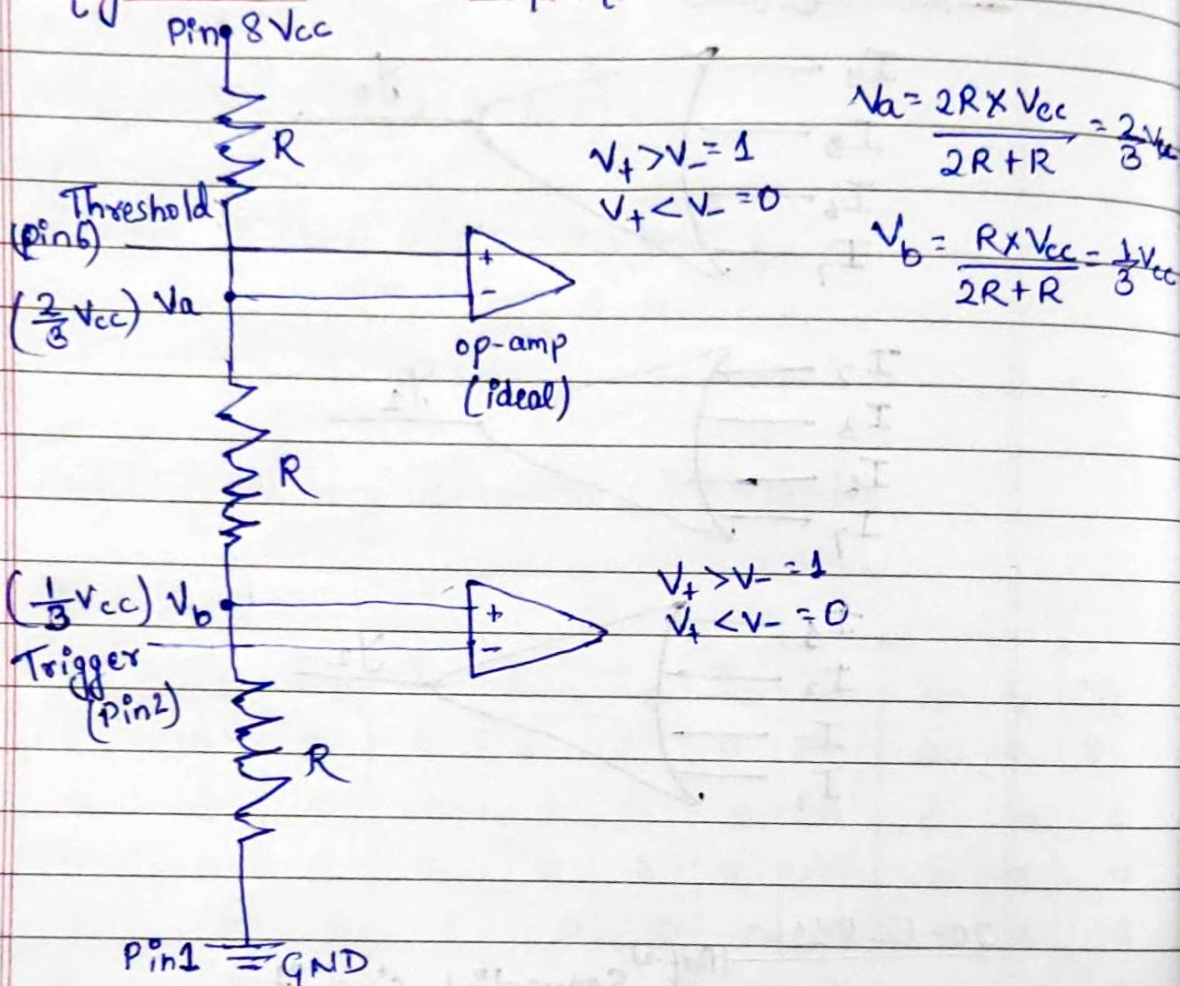 Pin 8 Vcc
R
Threshold
(pin6)
(2/3 Vcc) Va
+
-
op-amp
(ideal)
V+ > V- = 1
V+ < V- = 0
Va = 2R X Vcc / 2R + R = 2/3 Vcc
Vb = R X Vcc / 2R + R = 1/3 Vcc
R
(1/3 Vcc) Vb
Trigger
(Pin2)
+
-
V+ > V- = 1
V+ < V- = 0
R
Pin1
GND